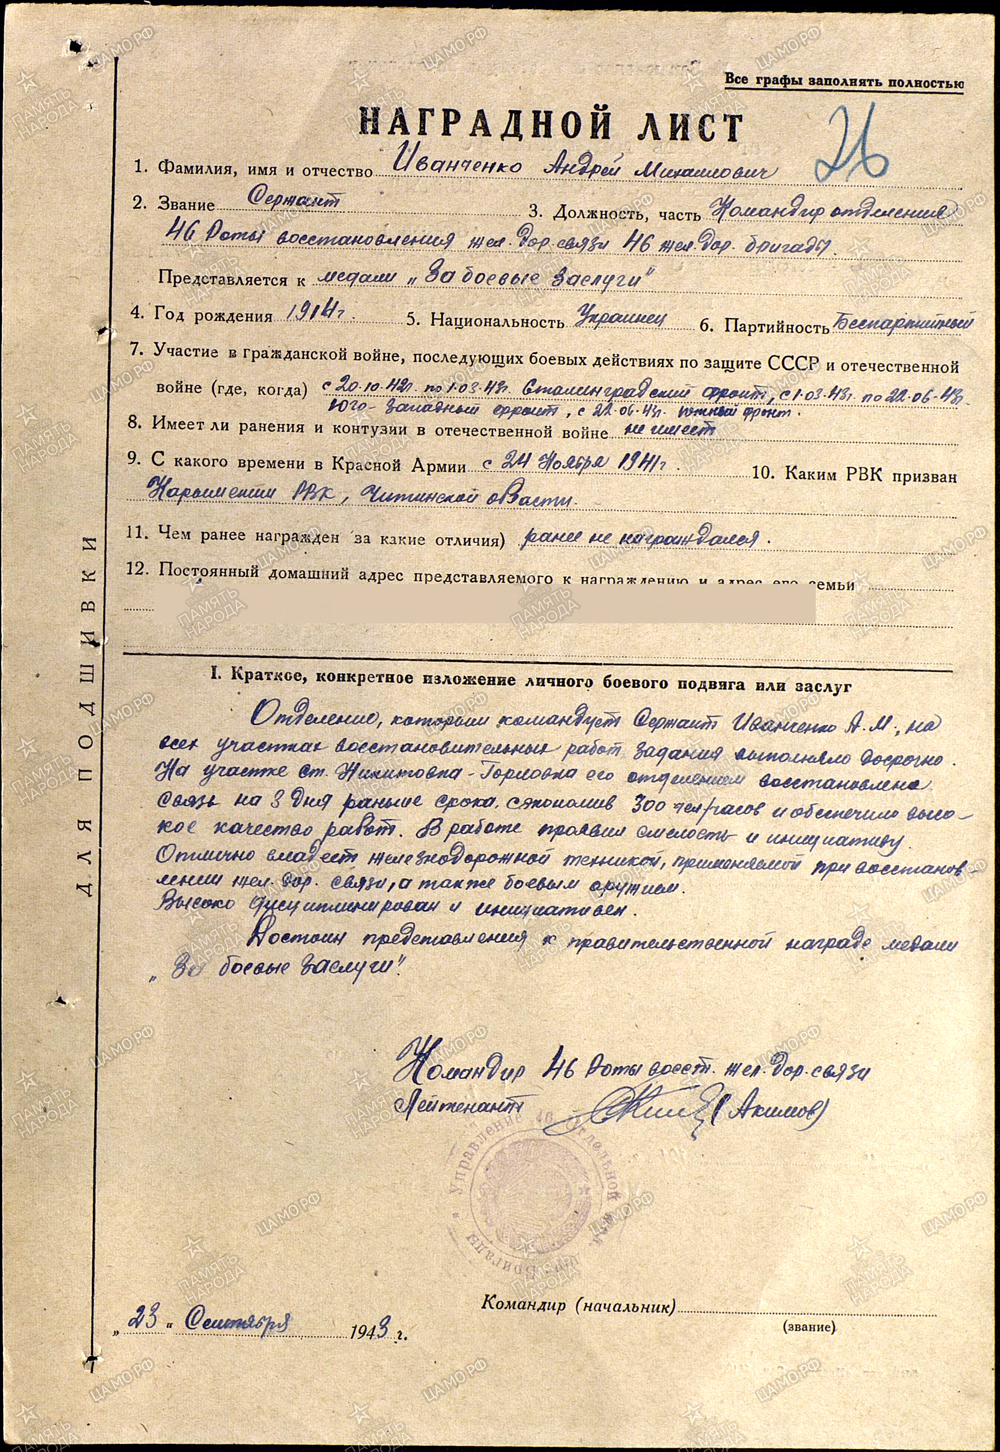 Все графы заполнять полностью
НАГРАДНОЙ ЛИСТ
26
1. Фамилия, имя и отчество Иванченко Андрей Михайлович
2. Звание Сержант 3. Должность, часть Командир отделения
46 Роты восстановления жел. дор. связи 46 жел. дор. бригады.
Представляется к медали „За боевые заслуги"
4. Год рождения 1914 г. 5. Национальность Украинец 6. Партийность Беспартийный
7. Участие в гражданской войне, последующих боевых действиях по защите СССР и отечественной
войне (где, когда) с 20.10.42г. по 1.03.43г. Сталинградский фронт, с 1.03.43г. по 22.06.43г.
Юго-Западный фронт, с 22.06.43г. Южный фронт.
8. Имеет ли ранения и контузии в отечественной войне не имеет
9. С какого времени в Красной Армии с 24 Ноября 1941 г. 10. Каким РВК призван
РВК, Читинской области.
11. Чем ранее награжден за какие отличия) ранее не награждался.
12. Постоянный домашний адрес представляемого к награждению и адрес его семьи
I. Краткое, конкретное изложение личного боевого подвига или заслуг
Отделение, которым командует Сержант Иванченко А.М., на
всех участках восстановительных работ задания выполняло досрочно.
На участке ст. Никитовка-Горловка его отделением восстановлена
связь на 3 дня раньше срока, сэкономив 300 чел/часов и обеспечило высо-
кое качество работ. В работе проявил смелость и инициативу.
Отлично владеет железнодорожной техникой, применяемой при восстанов-
лении жел. дор. связи, а также боевым оружием.
Высоко дисциплинирован и инициативен.
Достоин представления к правительственной награде медали
„За боевые заслуги".
Командир 46 Роты восст. жел. дор. связи
Лейтенант (Акимов)
Управление 46 Отдельной Бригады
Командир (начальник)
(звание)
„23" Сентября 1943 г.
ДЛЯ ПОДШИВКИ
ПАМЯТЬ НАРОДА
ЦАМО.РФ